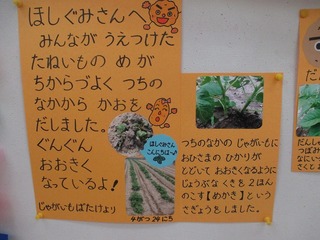 ほしぐみさんへ
みんなが うえつけた
たねいもの めが
ちからづよく つちの
なかから かおを
だしました。
ぐんぐん
おおきく
なっているよ!
じゃがいもばたけより
ほしぐみさん
こんにちは〜♪
4がつ24にち
つちのなかの じゃがいもに
おひさまの ひかりが
とどいて おおきくなるように
じょうぶな くきを 2ほん
のこす【めかき】という
さぎょうをしました。